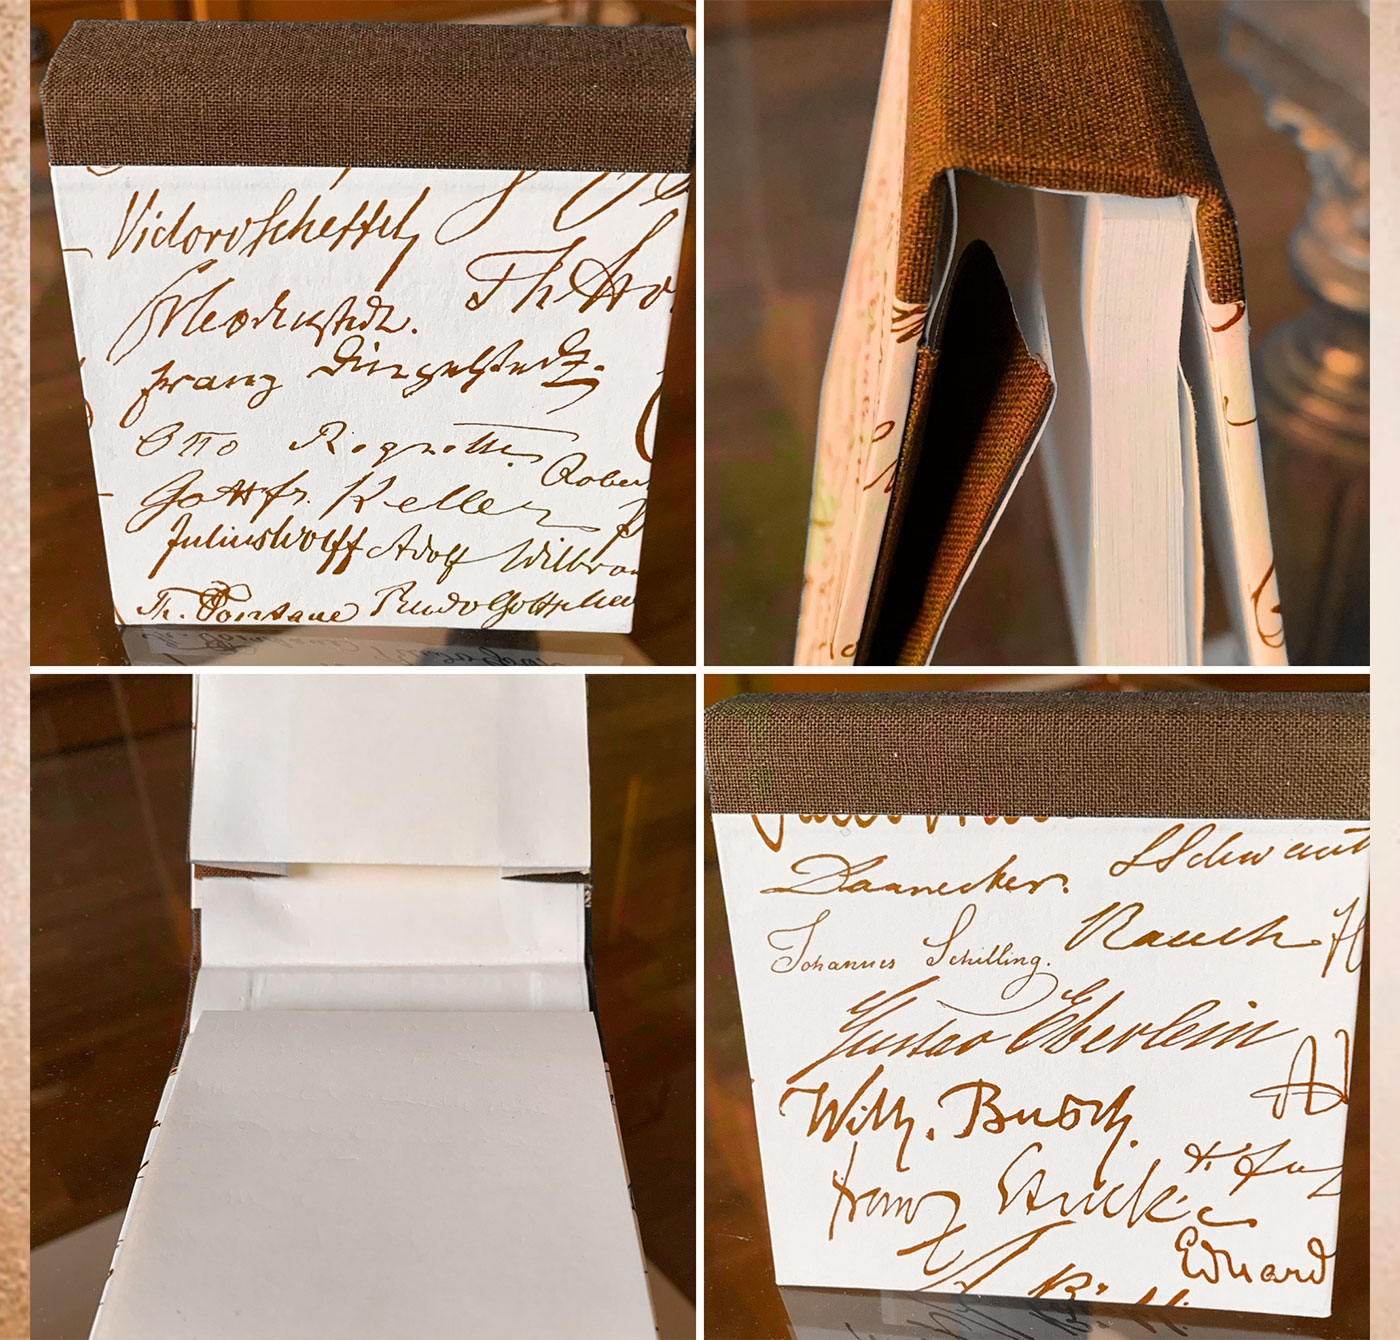 Victor v Scheffel
Th. Sto
Franz Dingelstedt.
Otto Roquette.
Rober
Gottfr. Keller
Julius Wolff Adolf Wilbra
Th. Fontane Rud v Gottschall
Dannecker.
Johannes Schilling.
Rauch
Gustav Eberlein
Wilh. Busch.
Franz Stuck
Eduard